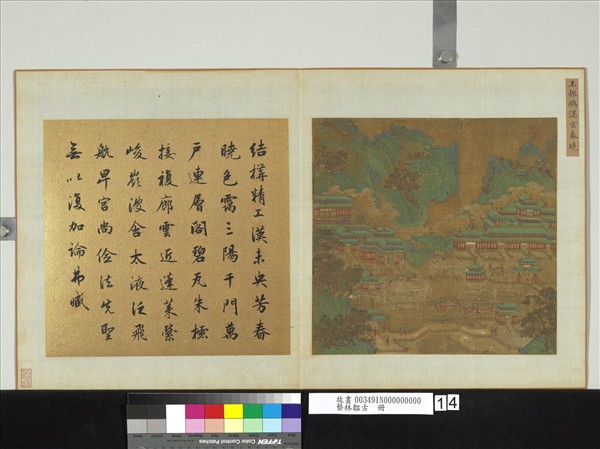 結構精工漢未央芳春
曉色靄三陽千門萬
戶連層閣碧瓦朱櫺
接複廊雲近蓬萊縈
峻嶺波含太液泛飛
航卑宮尚儉法先聖
無以復加論弗臧
王振鵬漢宮春曉
故畫 003491N000000000
藝林韞古 冊
14
TIFFEN Color Control Patches